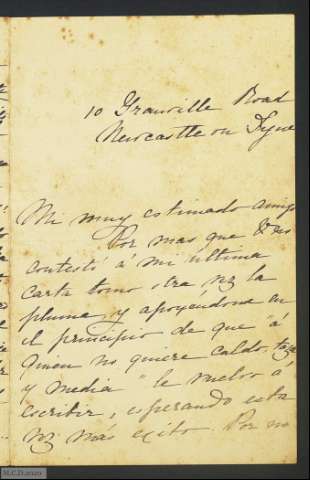 10 Granville Road
Newcastle on Tyne
Mi muy estimado amigo
Por mas que V. no
contestó á mi última
carta tomo otra vez la
pluma, y apoyendome en
el principio de que "á
quien no quiere caldo, taza
y media" le vuelvo á
escribir, esperando esta
vez más exito. Por no
M.C.D. 2020